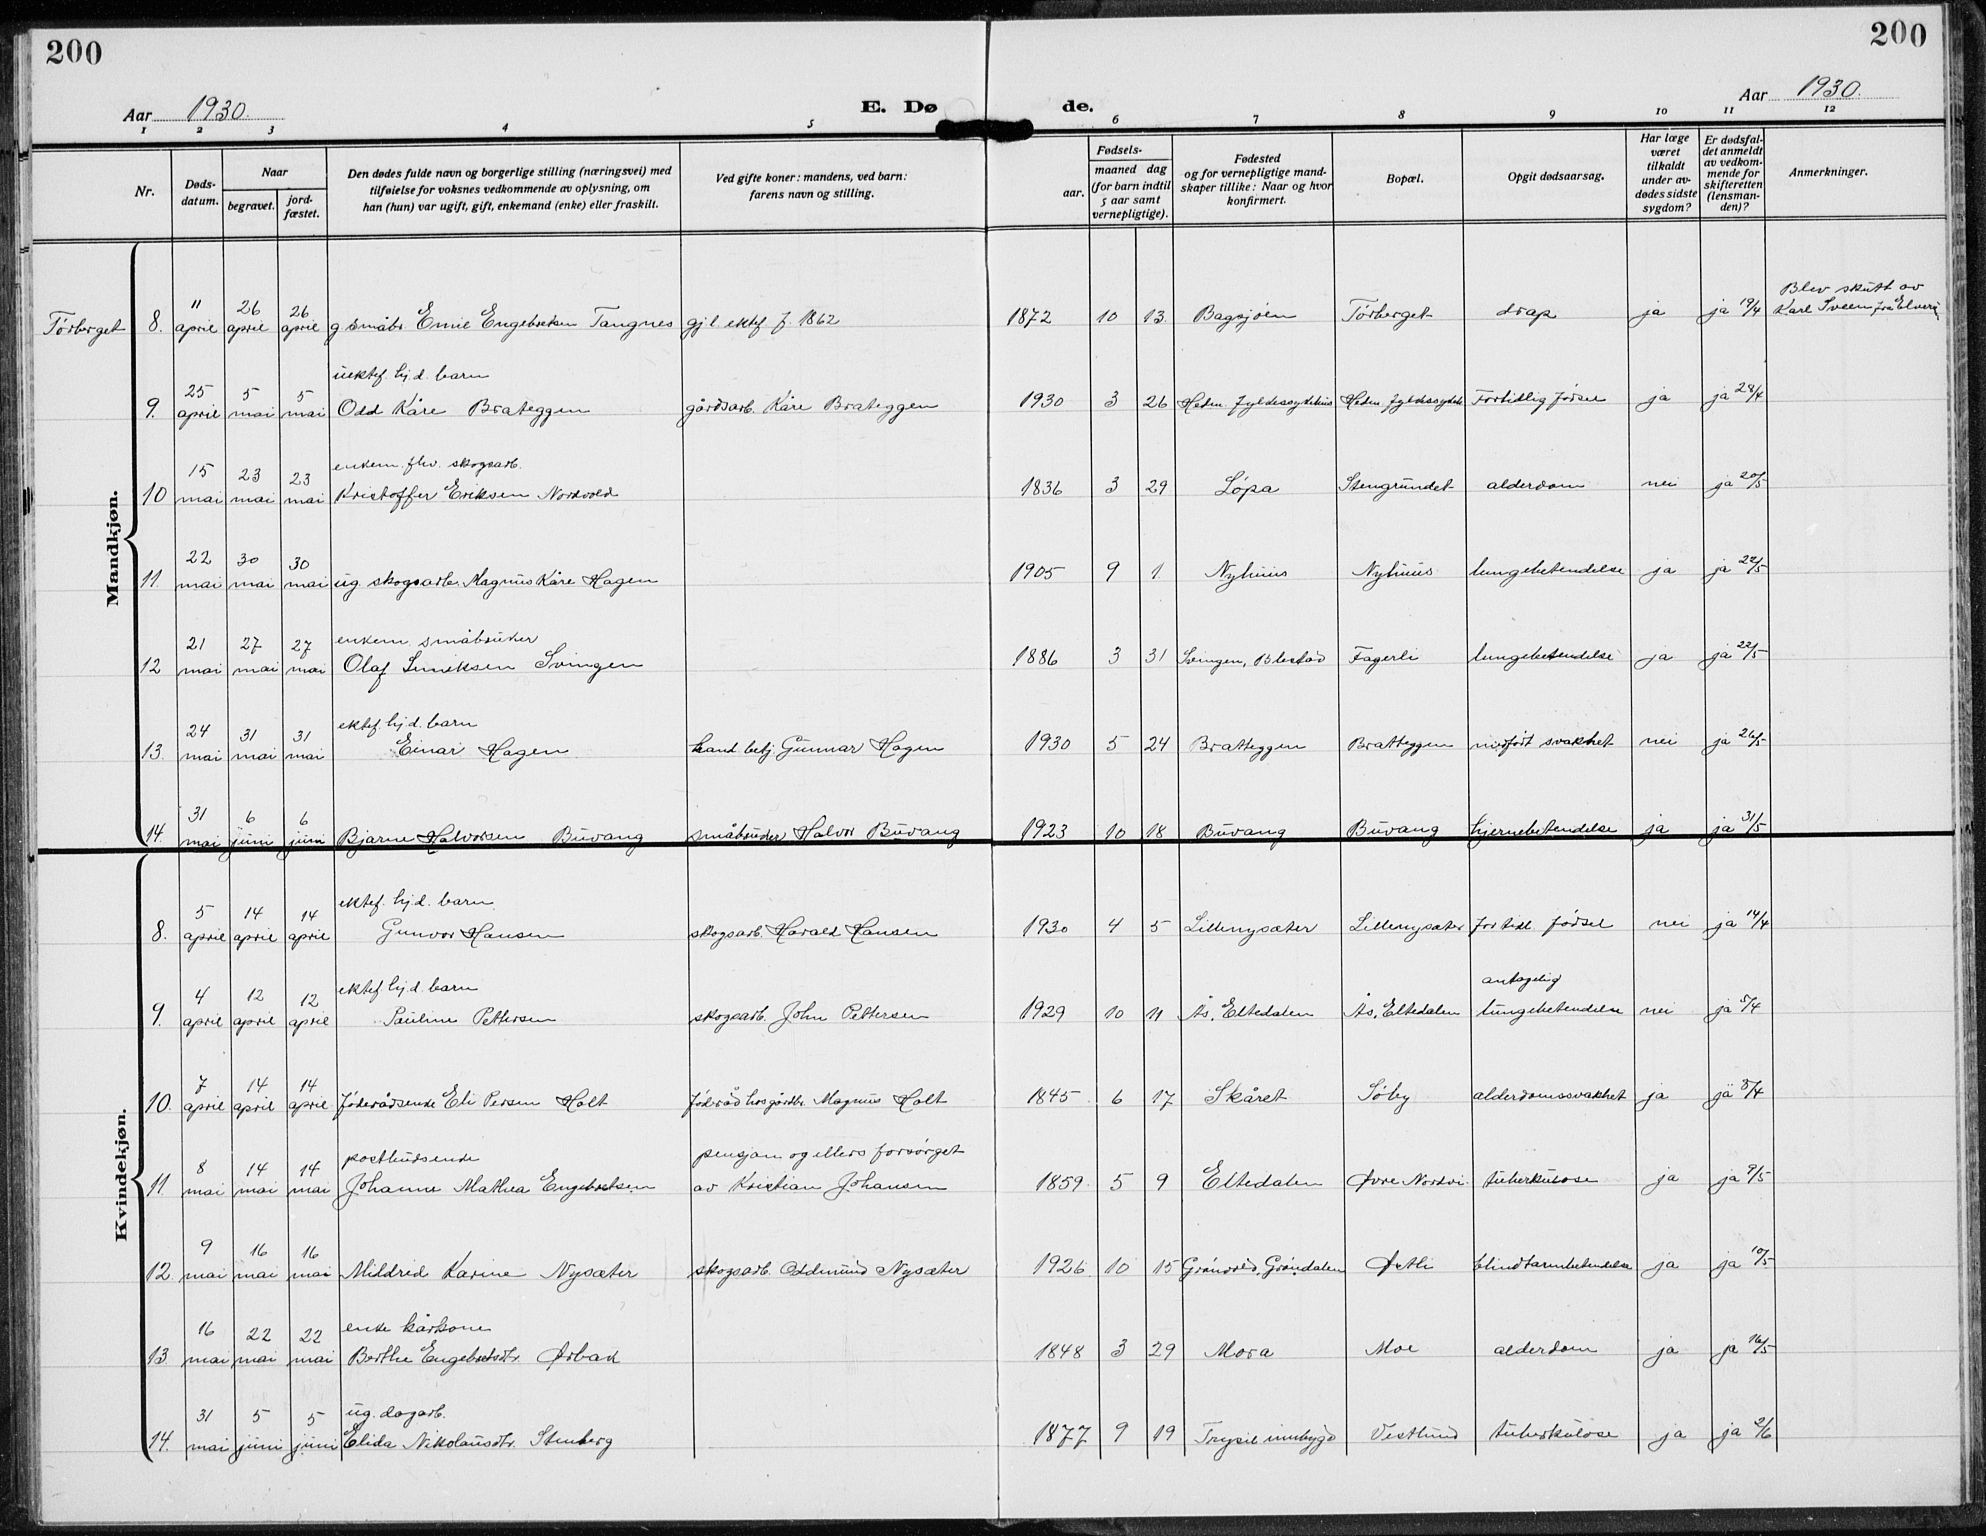 200
200
Aar 1930.
E. Dø
de.
Aar 1930.
1 2 3 4 5 6 7 8 9 10 11 12
Nr.
Døds-
datum.
Naar
begravet.
jord-
fæstet.
Den dødes fulde navn og borgerlige stilling (næringsvei) med
tilføielse for voksnes vedkommende av oplysning, om
han (hun) var ugift, gift, enkemand (enke) eller fraskilt.
Ved gifte koner: mandens, ved barn:
farens navn og stilling.
Fødsels-
aar.
maaned dag
(for barn indtil
5 aar samt
vernepligtige).
Fødested
og for vernepligtige mand-
skaper tillike: Naar og hvor
konfirmert.
Bopæl.
Opgit dødsaarsag.
Har læge
været
tilkaldt
under av-
dødes sidste
sygdom?
Er dødsfal-
det anmeldt
av vedkom-
mende for
skifteretten
(lensman-
den)?
Anmerkninger.
Mandkjøn.
11 26 26 Blev skutt av
Tørberget 8. april april april g småbr. Emil Engebretsen Tangnes gjl. ektef. f. 1862 1872 10 13 Bagsjøen Tørberget drap ja ja 19/4 Karl Sveen fra Elverum
25 5 5 uektef. hj.d. barn
9. april mai mai Odd Kåre Brateggen gårdsarb. Kåre Brateggen 1930 3 26 Hedm. fylkessykehus Hedm. fylkessykeh. Fortidlig fødsel ja ja 28/4
15 23 23 enkem. flv. skogsarb.
10 mai mai mai Kristoffer Eriksen Nordvold 1836 3 29 Løpa Stengrundet alderdom nei ja 20/5
22 30 30
11. mai mai mai ug. skogsarb. Magnus Kåre Hagen 1905 9 1 Nyhuus Nyhuus lungebetendelse ja ja 22/5
21 27 27 enkem. småbruker
12 mai mai mai Olaf Svingen 1886 3 31 Svingen, Fagerli lungebetendelse ja ja 22/5
24 31 31 ektef. hj.d. barn
13. mai mai mai Einar Hagen betj. Gunnar Hagen 1930 5 24 Bratteggen Bratteggen medfødt svakhet nei ja 26/5
31 6 6
14. mai juni juni Bjarne Halvorsen Buvang småbruker Halvor Buvang 1923 10 18 Buvang Buvang hjernebetendelse ja ja 31/5
Kvindekjøn.
5 14 14 ektef. hj.d. barn
8. april april april Gunvor Hansen skogsarb. Harald Hansen 1930 4 5 Lillenysæter Lillenysæter for tidl. fødsel nei ja 14/4
4 12 12 ektef. hj.d. barn antagelig
9. april april april Pauline Pettersen skogsarb. John Pettersen 1929 10 11 Ås, Eltedalen Ås, Eltedalen lungebetendelse nei ja 5/4
7 14 14
10. april april april føderådsenke Eli Persen Holt føderåd hos gårdbr. Magnus Holt 1845 6 17 Skåret Søby alderdomssvakhet ja ja 8/4
8 14 14 posthusenke pensjon og ellers forsørget
11. mai mai mai Johanne Mathea Engebretsen av Kristian Johansen 1859 5 9 Eltedalen Øvre Nordvi tuberkulose ja ja 9/5
9 16 16
12. mai mai mai Mildrid Karine Nysæter skogsarb. Oddmund Nysæter 1926 10 15 Grønvold, Grøndalen Østli blindtarmbetendelse ja ja 10/5
16 22 22 enke kårkone
13. mai mai mai Berthe Engebretsdtr. Ørbak 1848 3 29 Mora Moe alderdom ja ja 16/5
31 5 5 ug. dagarb.
14. mai juni juni Elida Nikolausdtr. Stenberg 1877 9 19 Trysil innbygd Vestlund tuberkulose ja ja 2/6